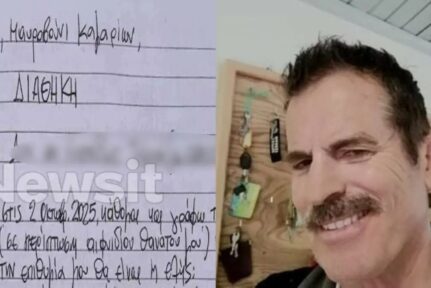 Μαυροβούνι
ΔΙΑΘΗΚΗ
Newsit
στις 2 Οκτωβ. 2025, κάθομαι και γράφω
(σε περίπτωση αιφνιδίου θανάτου μου)
την επιθυμία μου θα είναι η εξής: